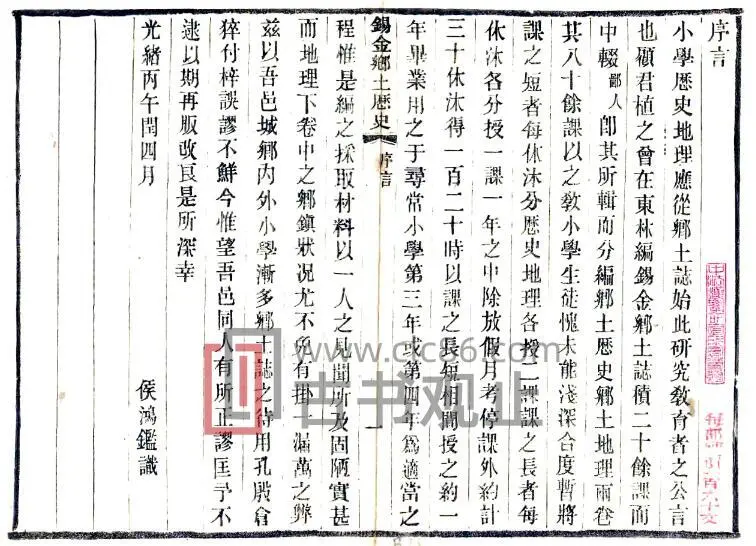 序言
小學歷史地理應從鄉土誌始此硏究敎育者之公言
也顧君植之曾在東林編錫金鄉土誌積二十餘課而
中輟鄙人卽其所輯而分編鄉土歷史鄉土地理兩卷
其八十餘課以之敎小學生徒愧未能淺深合度暫將
課之短者每休沐分歷史地理各授二課課之長者每
休沐各分授一課一年之中除放假月考停課外約計
三十休沐得一百二十時以課之長短相間授之約一
年畢業用之于尋常小學第三年或第四年爲適當之
錫金鄉土歷史 序言 一
程惟是編之採取材料以一人之見聞所及固陋實甚
而地理下卷中之鄉鎭狀况尤不免有掛一漏萬之弊
茲以吾邑城鄉內外小學漸多鄉土誌之待用孔殷倉
猝付梓誤謬不鮮今惟望吾邑同人有所正謬匡予不
逮以期再版改良是所深幸
光緒丙午閏四月
侯鴻鑑識
www.cjc86.com
古书观止